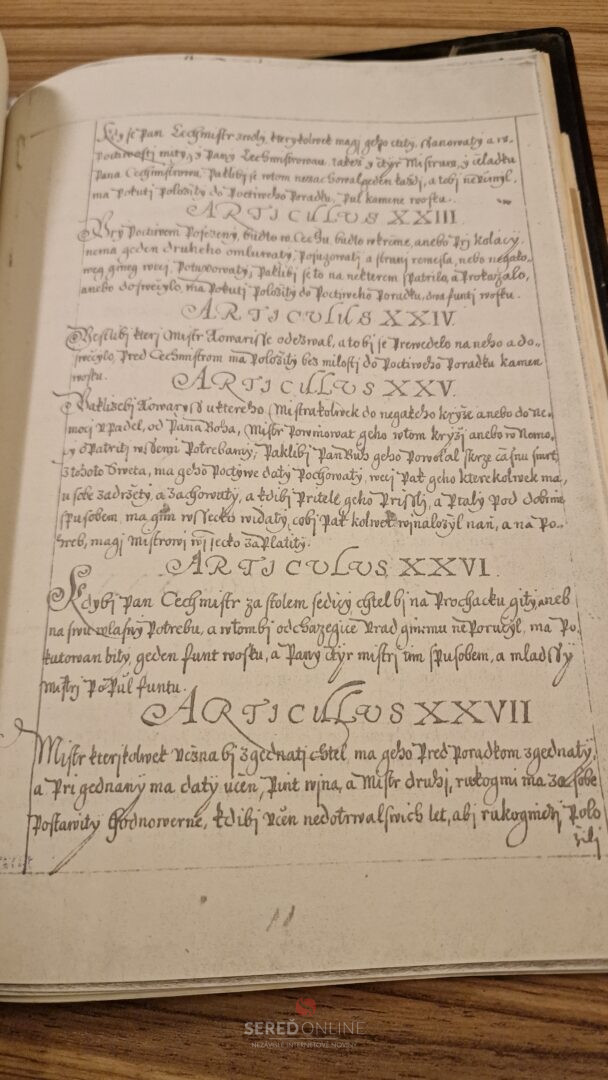 Kdy se Pan Cechmistr zwoly, kterykolwek magj geho ctity, ssanowaty a w
Poctiwosti mity, y Pany Cechmistrowau, takez y ctyr Mistruw, y celadku
Pana Cechmistrowu, Paklibj se w tom nezachowal geden kazdj, a tobj neucinyl,
ma Pokuti Polozity do Poctiweho Poradku, Pul kamene wosku.
ARTICULUS XXIII.
Pry Poctiwem Posezenj, budto w Cechu, budto w krcme, anebo Prj kolacy,
nema geden druheho omluwaty, Posuzowati a stranj remesla, nebo negako-
weg gineg wecy, Potupowaty, Paklibj se to na nekterem spatrilo, a Prokazalo,
anebo doswecylo, ma Pokuti Polozity do Poctiweho Poradku, dwa funtj wosku.
ARTICULUS XXIV.
Gestlibj kterj Mistr Towarisse odezwal, a to bj se Prewedelo na neho a do-
swecylo, Pred Cechmistrom ma Polozity bez milosti do Poctiweho Poradku kamen
wosku.
ARTICULUS XXV.
Paklizebj Towarys u ktereho, Mistra kolwek do negakeho kryze anebo do Ne-
mocy upadel, od Pana Boha, Mistr Powinowat geho w tom kryzj anebo w Nemo-
cy oPatriti wssemi Potrebamy; Paklibj Pan Buh geho Powolal skrze casnu smrt
z tohoto Sweta, ma geho Poctywe daty Pochowaty, wecj Pak geho ktere kolwek ma,
u sebe zadrzety, a zachowaty, a kdibj Pritele geho Prissly, a Ptaly Pod dobrim
spusobem, ma gim wssecko widaty, cobj Pak kolwek wynalozyl nan, a na Po-
hreb, magj Mistrowi wssecko zaPlatity.
ARTICULUS XXVI.
Kdybj Pan Cechmistr za stolem sedicy chtel bj na Prochacku gity, aneb
na swu wlasny Potrebu, a w tom bj odchazegice Urad ginemu nePorucyl, ma Po-
kutowan bity, geden funt wosku, a Pany ctyr mistri tim spusobem, a mladssy
Mistrj Po Pul funtu.
ARTICULUS XXVII
Mistr kterjkolwek Ucznabj zgednati chtel, ma geho Pred Poradkom zgednaty,
a Pri gednany ma daty ucen, Pint wjna, a Mistr druhj, rukogmi ma za sebe
Postawity hodnowerne, kdibj Ucen nedotrwal swich let, abj rukogmicy Polo
zili
11
SEREĎ ONLINE
NEZÁVISLÉ INTERNETOVÉ NOVINY